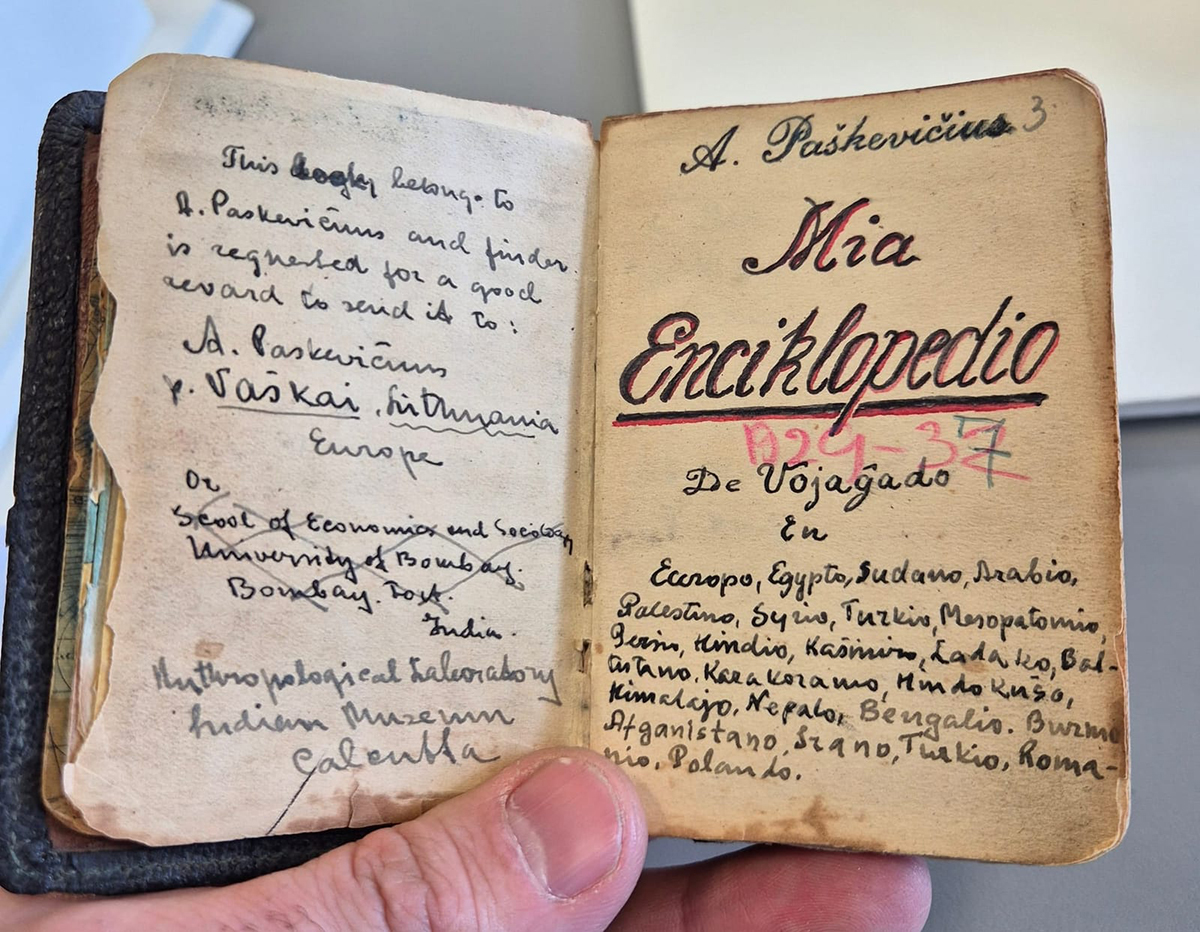 This belongs to
A. Paskevičius and finder
is requested for a good
revard to send it to:
A. Paskevičius
p. Vaškai, Lithuania
Europe
Or
Scool of Economics and Sociology
University of Bombay.
Bombay. Fort.
India.
Anthropological Laboratory
Indian Museum
Calcutta
A. Paškevičius 3
Mia
Enciklopedio
B24-37
De Vojaĝado
En
Europo, Egypto, Sudano, Arabio,
Palestino, Syrio, Turkio, Mesopotamio,
Persio, Hindio, Kašmiro, Ladako, Bal-
tistano, Karakoramo, Hindokušo,
Himalajo, Nepalo, Bengalio. Burmo
Afganistano, Irano, Turkio, Roma-
nio, Polando.